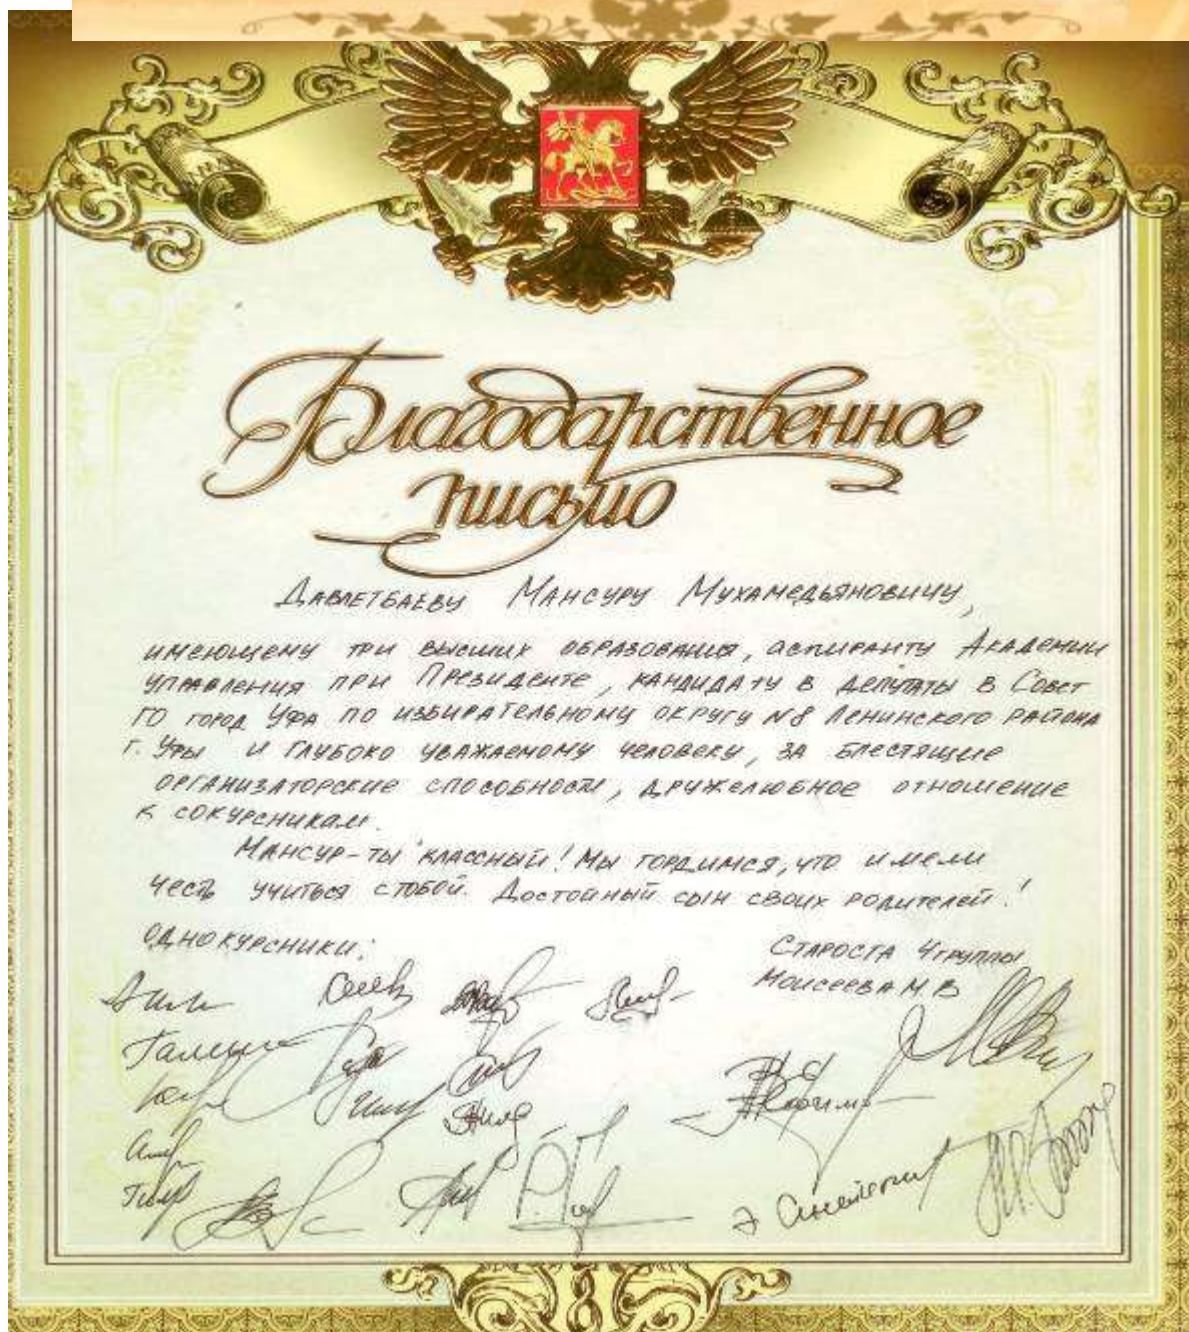 Благодарственное
письмо
Давлетбаеву Мансуру Мухамедьяновичу,
имеющему три высших образования, аспиранту Академии
управления при Президенте, кандидату в депутаты в Совет
ГО город Уфа по избирательному округу №8 Ленинского района
г. Уфы и глубоко уважаемому человеку, за блестящие
организаторские способности, дружелюбное отношение
к сокурсникам.
Мансур - ты классный! Мы гордимся, что имели
честь учиться с тобой. Достойный сын своих родителей!
Однокурсники:
Староста 4 группы
Моисеева М.В